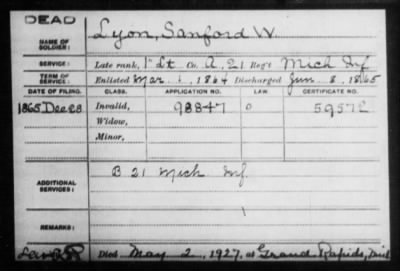 DEAD
NAME OF SOLDIER: Lyon, Sanford W.
SERVICE: Late rank, 1st Lt Co. A, 21 Reg't Mich Inf
TERM OF SERVICE: Enlisted Mar. 1, 1864 Discharged Jun. 8, 1865
DATE OF FILING. CLASS. APPLICATION NO. LAW. CERTIFICATE NO.
1865 Dec 28 Invalid, 98847 0
Widow,
Minor,
ADDITIONAL SERVICES: B 21 Mich Inf.
REMARKS:
Died May 2, 1927, at Grand Rapids, Mich